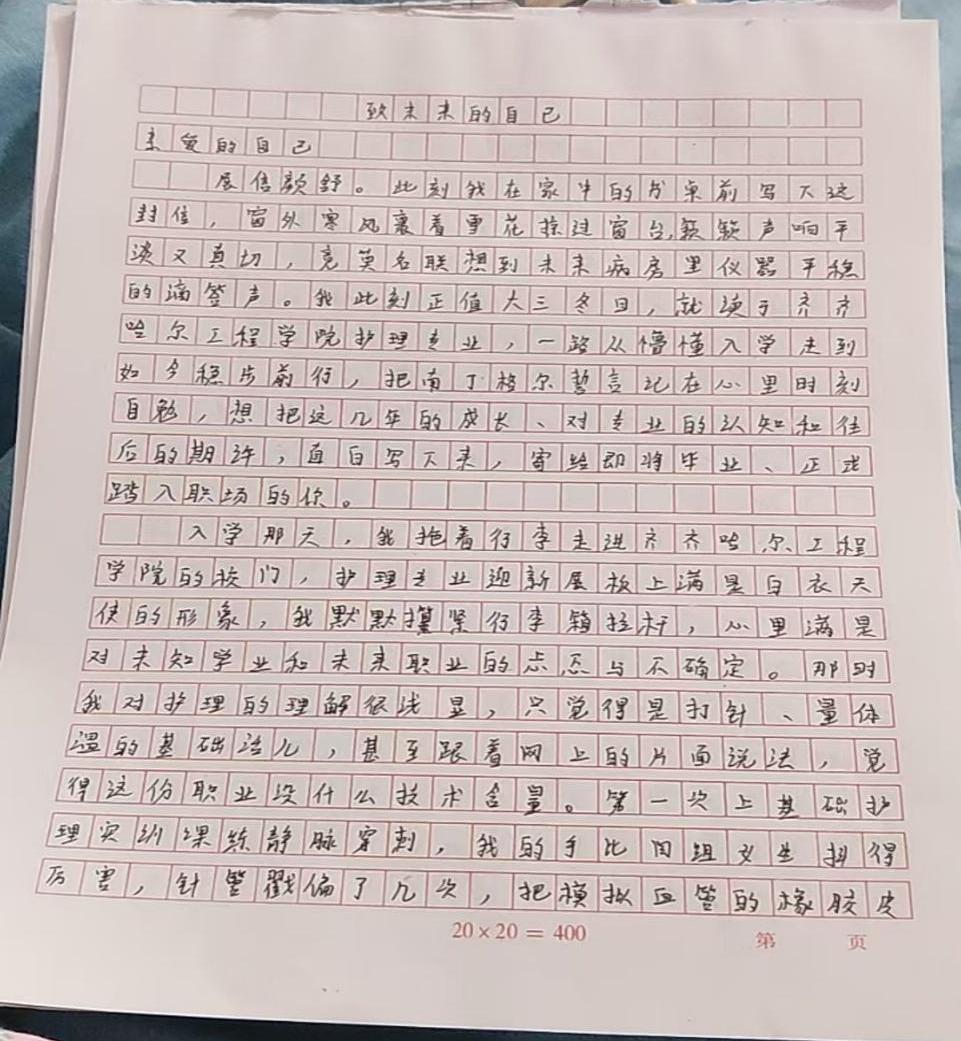 致未来的自己
亲爱的自己
展信颜舒。此刻我在家中的书桌前写下这
封信，窗外寒风裹着雪花掠过窗台，簌簌声响平
淡又真切，竟莫名联想到未来病房里仪器平稳
的滴答声。我此刻正值大三冬日，就读于齐齐
哈尔工程学院护理专业，一路从懵懂入学走到
如今稳步前行，把南丁格尔誓言记在心里时刻
自勉，想把这几年的成长、对专业的认知和往
后的期许，直白写下来，寄给即将毕业、正式
踏入职场的你。
入学那天，我拖着行李走进齐齐哈尔工程
学院的校门，护理专业迎新展板上满是白衣天
使的形象，我默默攥紧行李箱拉杆，心里满是
对未知学业和未来职业的忐忑与不确定。那时
我对护理的理解很浅显，只觉得是打针、量体
温的基础活儿，甚至跟着网上的片面说法，觉
得这份职业没什么技术含量。第一次上基础护
理实训课练静脉穿刺，我的手比同组女生抖得
厉害，针管戳偏了几次，把模拟血管的橡胶皮
20×20=400
第 页